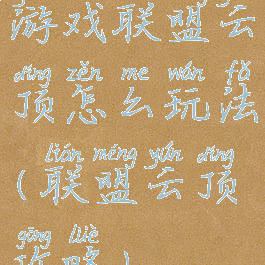 游戏联盟云
dǐng zěn me wán fǎ
顶怎么玩法
lián méng yún dǐng
(联盟云顶
gōng lüè
攻略)